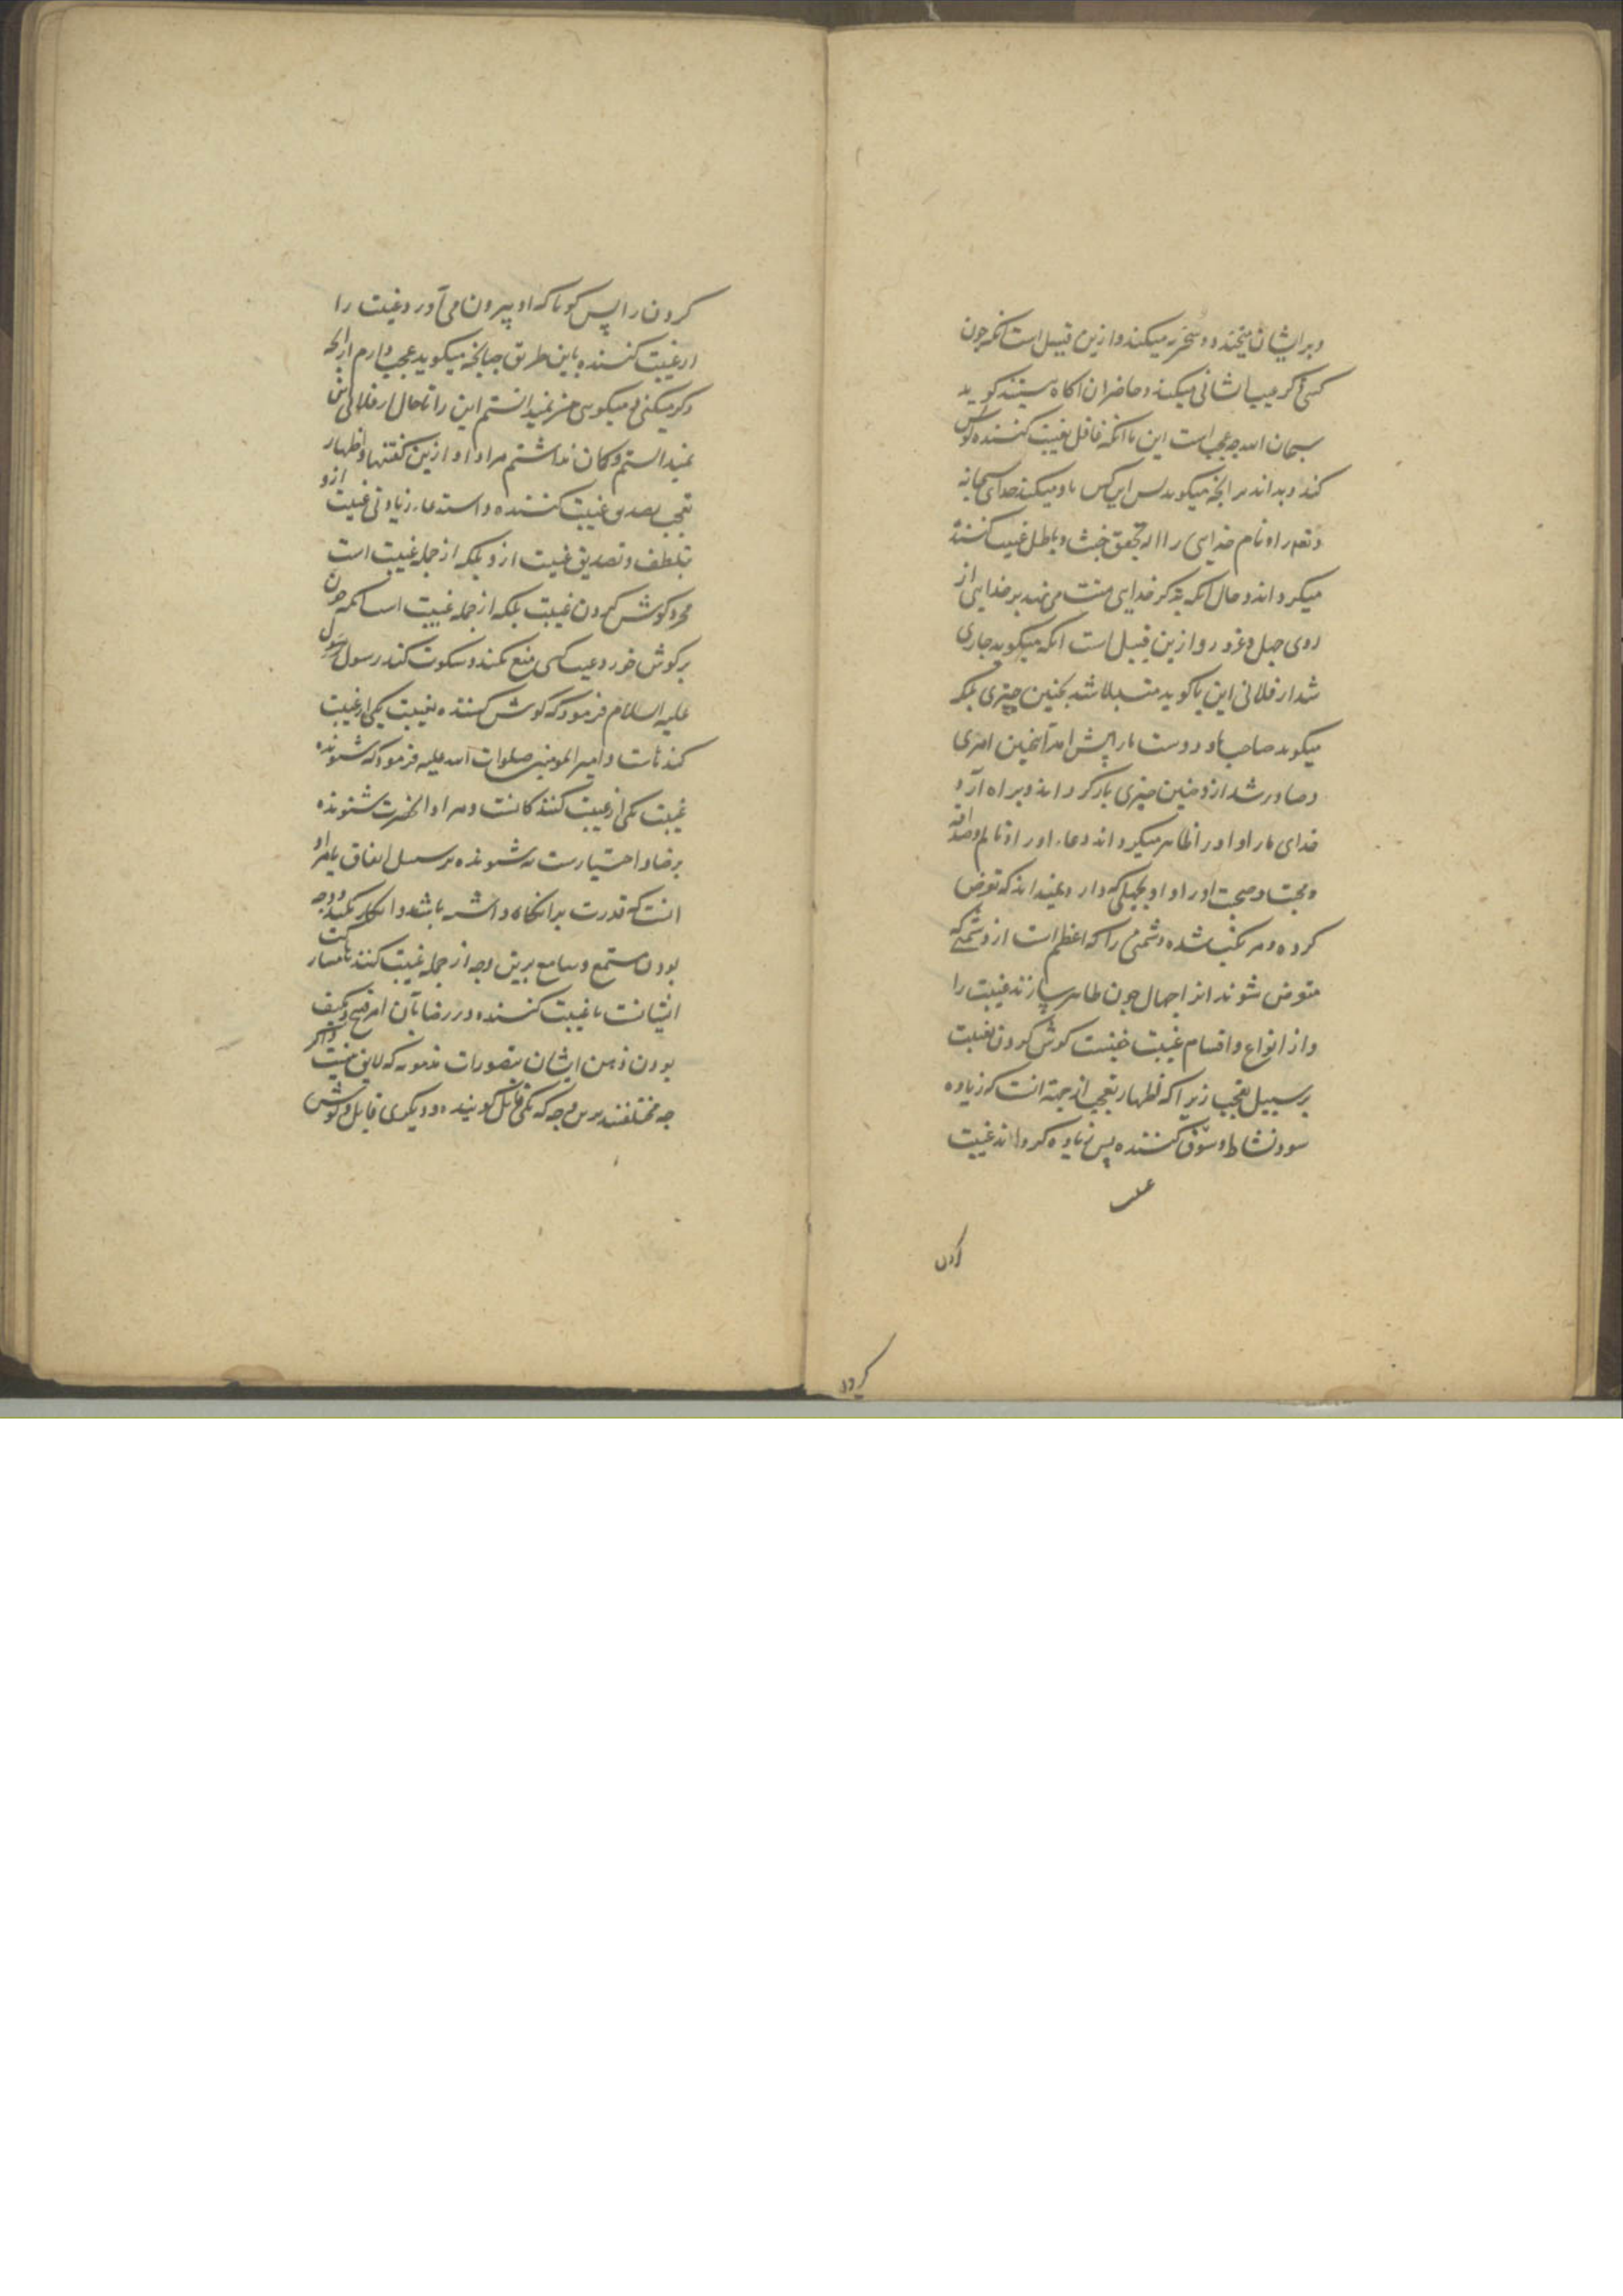 و بر ایشان میخندد و سخریه میکند و ازین قبیل است آنکه چون
کسی ذکر عیب انسانی میکند و حاضران آگاه نیستند گوید
سبحان الله چه عجب است این تا آنکه غافل بغیبت کننده گوش
کند و بداند مر آنچه میگوید پس این کس یاد میکند خدای سبحانه
و تعالی را و نام خدای را آله تحقق خبث و باطل غیبت کننده
میگرداند و حال آنکه بذکر خدای منت می نهد بر خدای از
روی جهل و غرور و ازین قبیل است آنکه میگوید جاری
شد از فلانی این یا گوید مبتلا شد بچنین چیزی بلکه
میگوید صاحب ما و دوست ما را پیش آمد آنچنین امری
و صادر شد ازو چنین چیزی باز گرداند و براه آرد
خدای ما را و او را ظاهر میگرداند دعاء او را و تالم و صداقه
و محبت و صحبت او را و او بجهلی که دارد نمیداند که تعرض
کرده و مرتکب شده دشمنی را که اعظم است از دشمنی که
متعرض شوند آنرا جهال چون ظاهر سازند غیبت را
و از انواع و اقسام غیبت خفیست گوش کردن بغیبت
بر سبیل تعجب زیرا که اظهار تعجب از جهة آنست که زیاده
شود نشاط و شوق کننده پس زیاده گرداند غیبت
کردن
کردن را پس گویا که او بیرون می آورد غیبت را
از غیبت کننده باین طریق چنانچه میگوید عجب دارم از آنچه
ذکر میکنی یا میگویی من نمیدانستم این را تا حال از فلانی این
نمیدانستم و گمان نداشتم مراد او ازین گفتنها و اظهار
تعجب تصدیق غیبت کننده و استدعاء زیادتی غیبت ازو
بتلطف و تصدیق غیبت ازو بلکه از جمله غیبت است
مجرد گوش کردن غیبت بلکه از جمله غیبت است آنکه چون
بر گوش خورد عیب کسی منع نکند و سکوت کند رسول
علیه السلام فرمود که گوش کننده بغیبت یکی از غیبت
کنندگانست و امیر المومنین صلوات الله علیه فرمود که شنونده
غیبت یکی از غیبت کنندگانست و مراد آنحضرت شنونده
برضا و اختیارست نه شنونده بر سبیل اتفاق یا مراد
آنست که قدرت بر انکار داشته باشد و انکار نکند و وجه
بودن مستمع و سامع برین وجه از جمله غیبت کنندگان مشارکت
ایشانست با غیبت کننده در رضا بآن امر قبیح و تکیف
بودن ذهن ایشان بتصورات مذمومه که لایق نیست و اگر
چه مختلفند برین وجه که یکی قایل گوینده و دیگری قابل و گوش